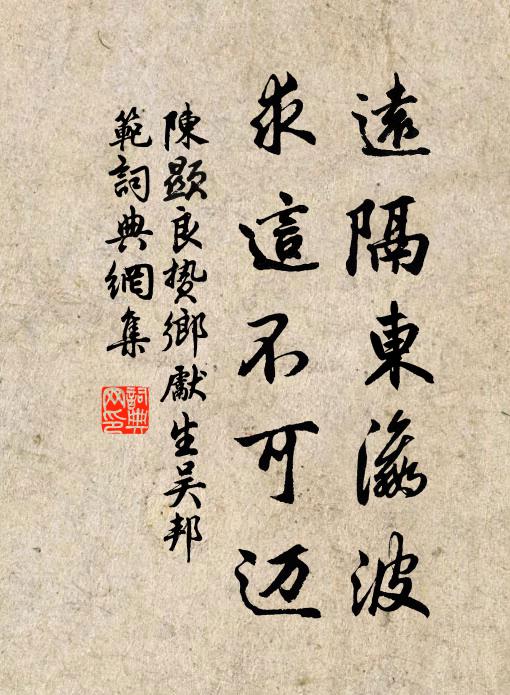 遠隔東瀛波
求這不可迈
陳顯良贄鄉獻生吳邦
範詞典網集
詞典
网印